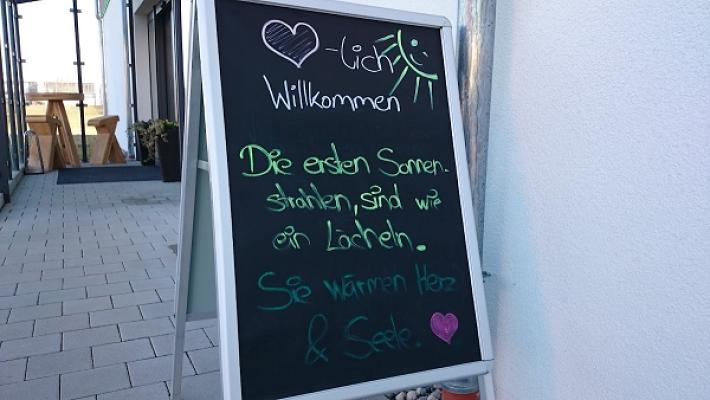 ♥-lich
Willkommen
Die ersten Sonnen-
strahlen, sind wie
ein Lächeln.
Sie wärmen Herz
& Seele.